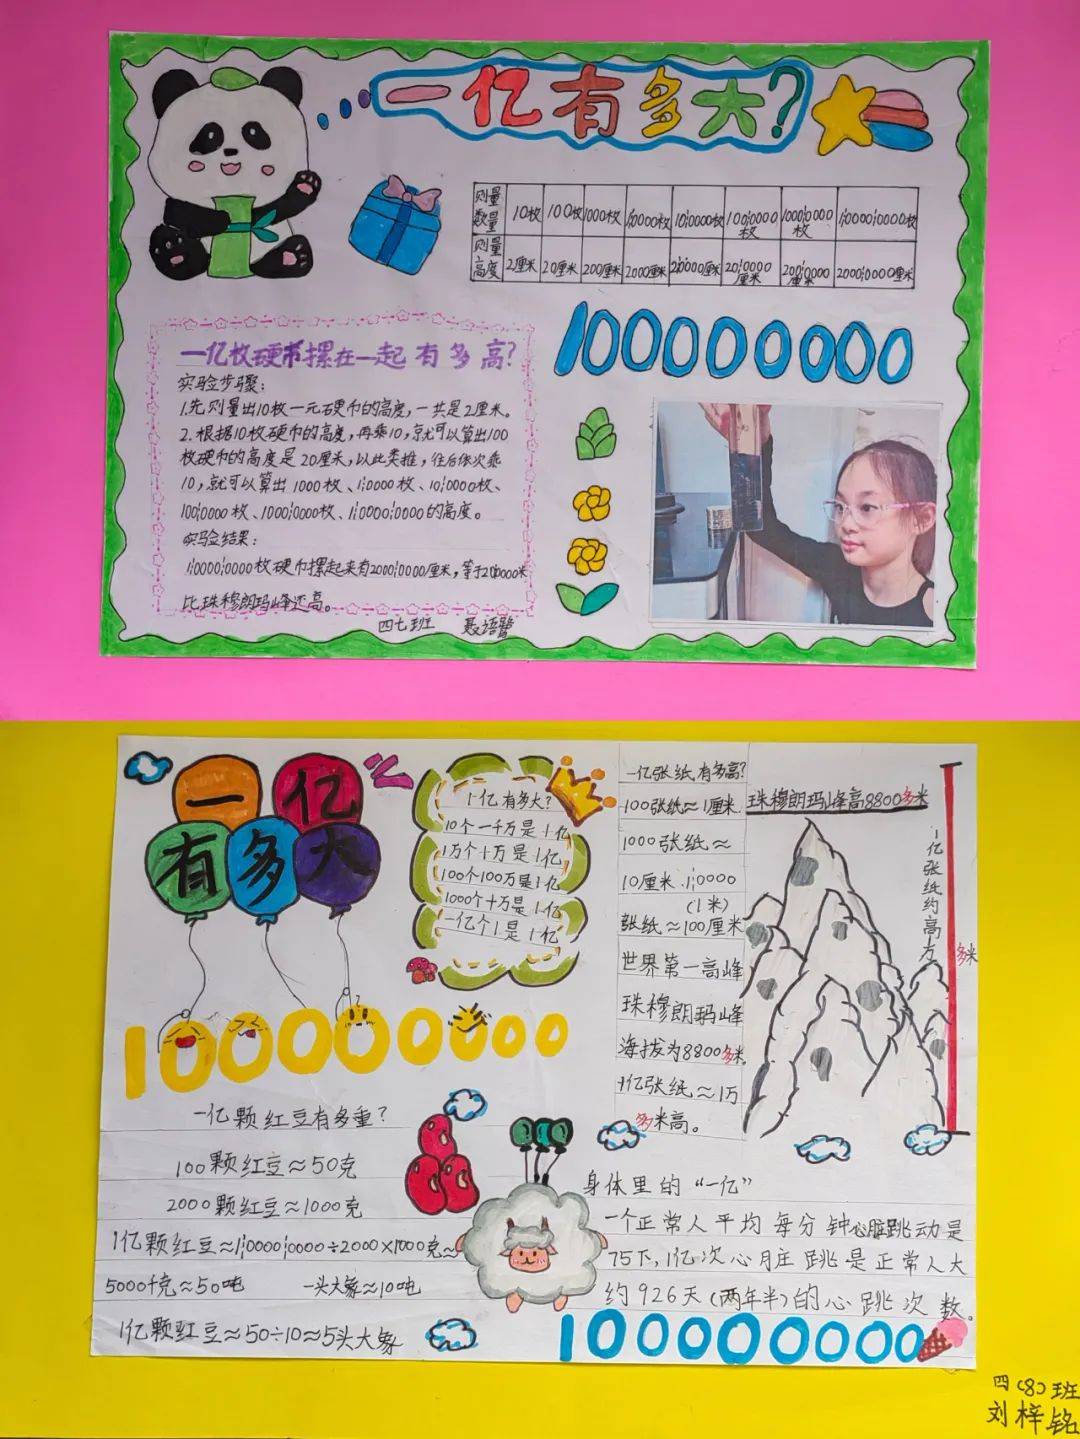 一亿有多大?
测量数量 10枚 100枚 1000枚 1,0000枚 10,0000枚 100,0000枚 1000,0000枚 1,0000,0000枚
测量高度 2厘米 20厘米 200厘米 2000厘米 2,0000厘米 20,0000厘米 200,0000厘米 2000,0000厘米
100000000
一亿枚硬币摞在一起有多高?
实验步骤:
1.先测量出10枚一元硬币的高度,一共是2厘米。
2.根据10枚硬币的高度,再乘10,就可以算出100
枚硬币的高度是20厘米,以此类推,往后依次乘
10,就可以算出1000枚、1,0000枚、10,0000枚、
100,0000枚、1000,0000枚、1,0000,0000的高度。
实验结果:
1,0000,0000枚硬币摞起来有2000,0000厘米,等于20,0000米
比珠穆朗玛峰还高。
四七班 聂语
一亿
有多大
1亿有多大?
10个一千万是1亿
1万个1万是1亿
100个100万是1亿
1000个十万是1亿
一亿个1是1亿
100000000
一亿张纸有多高?
100张纸≈1厘米.
1000张纸≈
10厘米.1,0000
(1米)
张纸≈100厘米
世界第一高峰
珠穆朗玛峰
海拔为8800多米
1亿张纸≈1万
多米高。
珠穆朗玛峰高8800多米
1亿张纸约高万
多米
一亿颗红豆有多重?
100颗红豆≈50克
2000颗红豆≈1000克
1亿颗红豆≈1,0000,0000÷2000×1000克≈
50000千克≈50吨 一头大象≈10吨
1亿颗红豆≈50÷10≈5头大象
身体里的“一亿”
一个正常人平均每分钟心脏跳动是
75下,1亿次心脏跳是正常人大
约926天(两年半)的心跳次数。
100000000
四(8)班
刘梓铭